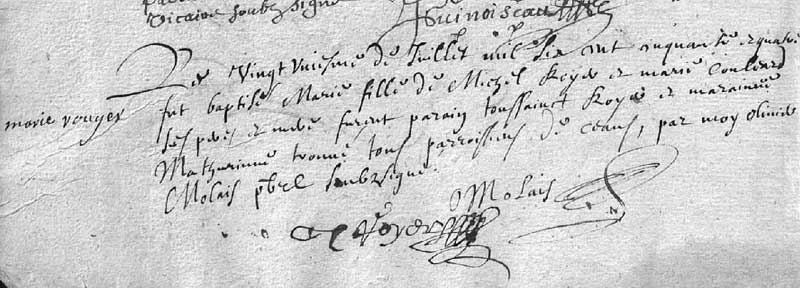 Vicaire soubz signé
Guinoiseau
Le vingt uniesme de Juillet mil six cent cinquante et quatre
marie rouyer
fut baptisé Marie fille de Michel Royer et marie Couleard
ses pere et mere furent parain toussainct Royer et maraine
Mathurinne tronne tous parroissiens de ceans, par moy Olivier
Molais pbre soubzsigne.
Molais
Royer